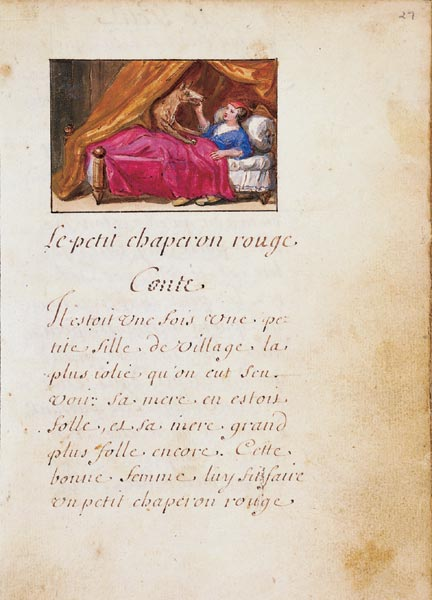 27
Le petit chaperon rouge.
Conte.
Il estoit une fois une pe-
tite fille de village la
plus iolie qu'on eut sçeu
voir: sa mere en estoit
folle, et sa mere grand
plus folle encore. Cette
bonne femme luy fit faire
un petit chaperon rouge